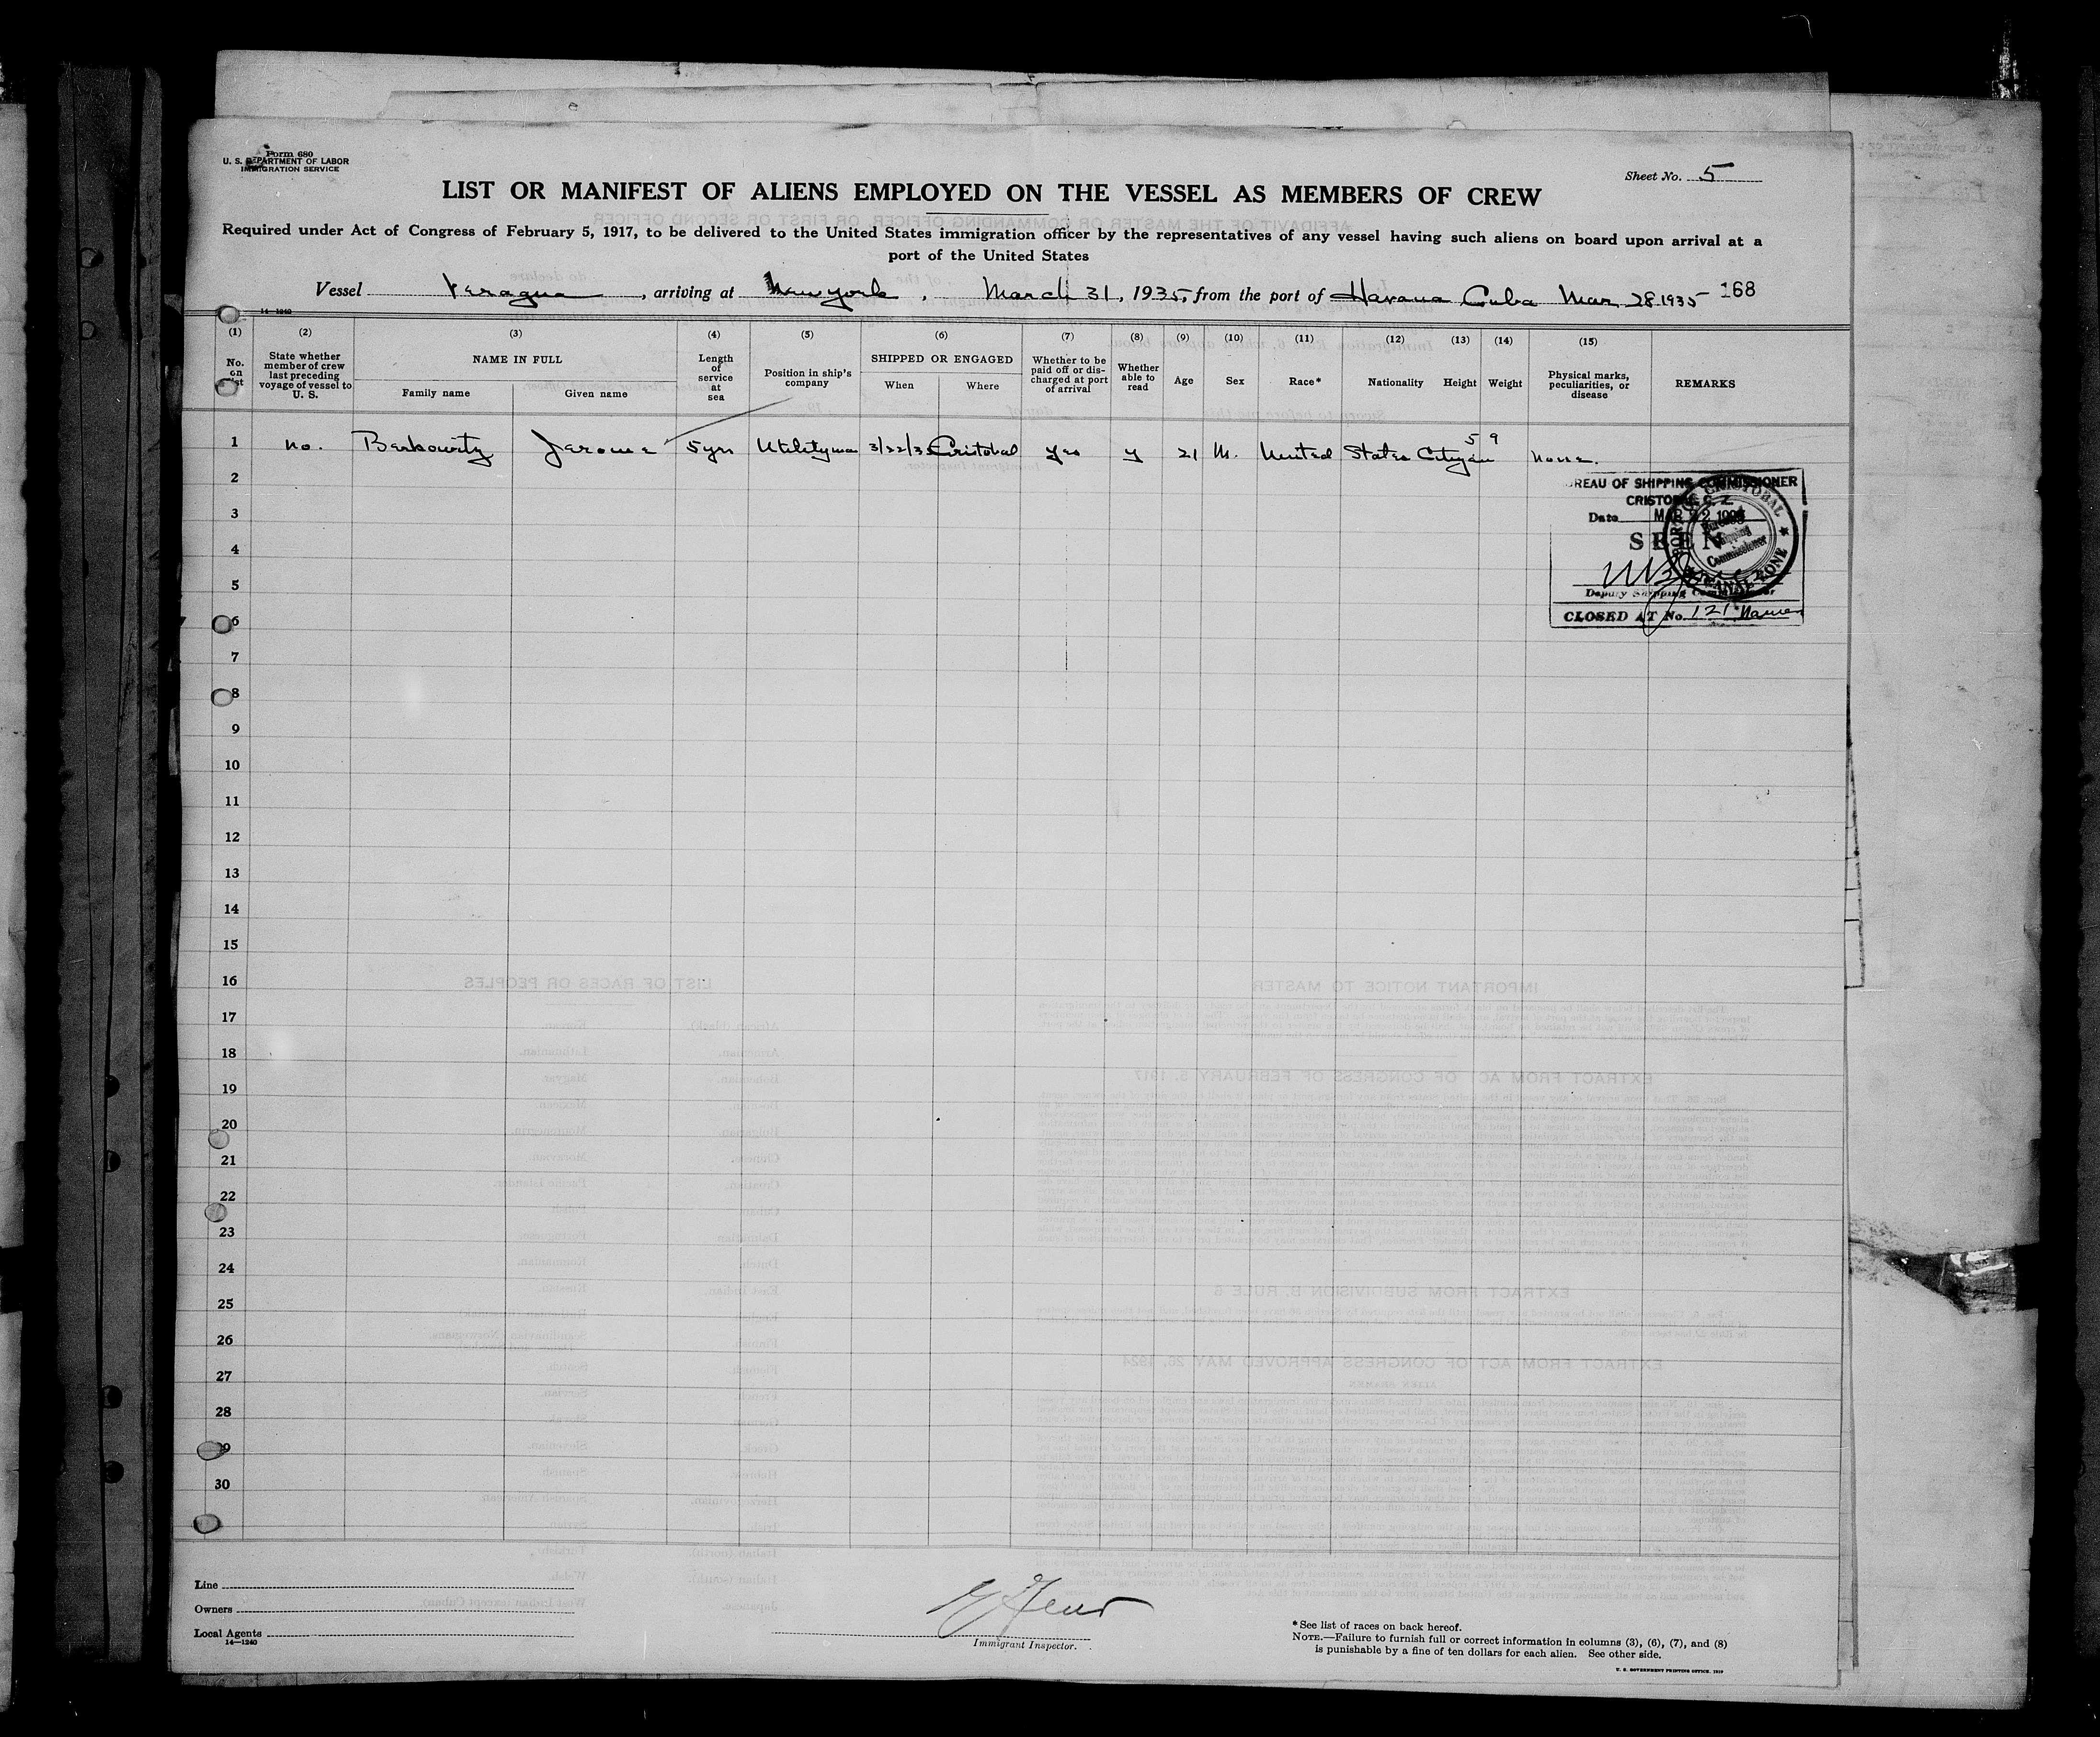 Form 680
U. S. DEPARTMENT OF LABOR
IMMIGRATION SERVICE
Sheet No. 5
LIST OR MANIFEST OF ALIENS EMPLOYED ON THE VESSEL AS MEMBERS OF CREW
Required under Act of Congress of February 5, 1917, to be delivered to the United States immigration officer by the representatives of any vessel having such aliens on board upon arrival at a
port of the United States
Vessel Veragua, arriving at New York, March 31, 1935, from the port of Havana Cuba Mar 28 1935 168
14—1240
(1) (2) (3) (4) (5) (6) (7) (8) (9) (10) (11) (12) (13) (14) (15)
No. on list
State whether member of crew last preceding voyage of vessel to U. S.
NAME IN FULL
Family name Given name
Length of service at sea
Position in ship's company
SHIPPED OR ENGAGED
When Where
Whether to be paid off or discharged at port of arrival
Whether able to read
Age Sex Race* Nationality Height Weight
Physical marks, peculiarities, or disease
REMARKS
1 no. Berkowitz Jerome 5 yrs Utilityman 3/22/35 Cristobal yes y 21 M. United States Citizen 5 9 None.
BUREAU OF SHIPPING COMMISSIONER
CRISTOBAL C. Z.
Date MAR 22
SEEN
Deputy Shipping Commissioner
CLOSED AT No. 121 Names
PORT OF CRISTOBAL
Shipping
Commissioner
CANAL ZONE
2
3
4
5
6
7
8
9
10
11
12
13
14
15
16
17
18
19
20
21
22
23
24
25
26
27
28
29
30
Line
Owners
Local Agents
14—1240
Immigrant Inspector.
* See list of races on back hereof.
NOTE.—Failure to furnish full or correct information in columns (3), (6), (7), and (8)
is punishable by a fine of ten dollars for each alien. See other side.
U. S. GOVERNMENT PRINTING OFFICE. 1929